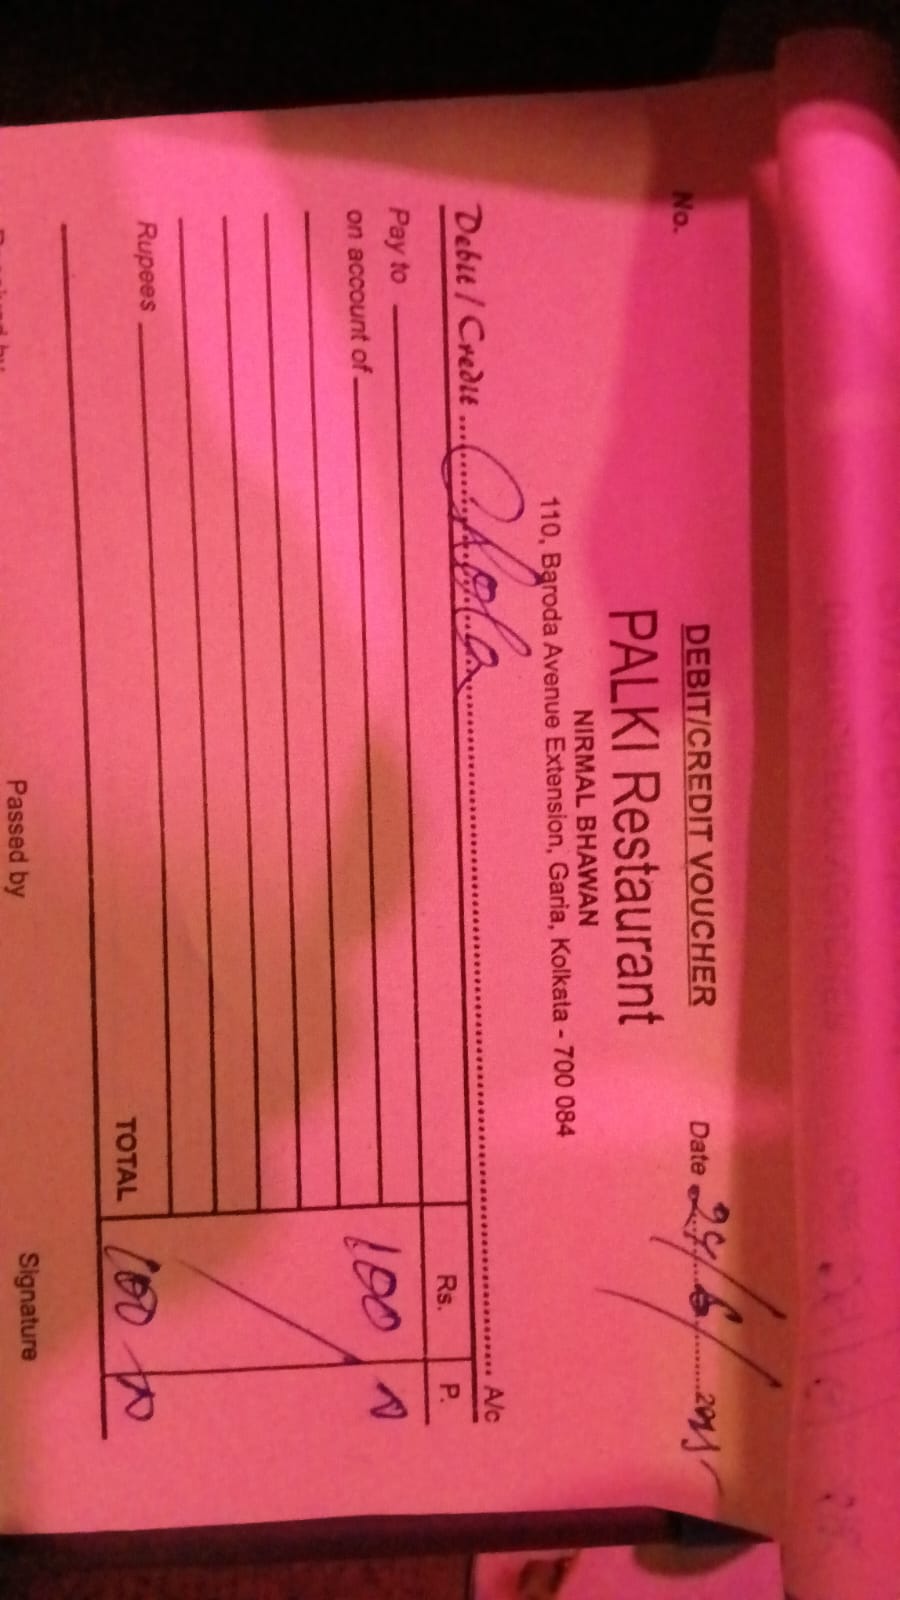 DEBIT/CREDIT VOUCHER
No.
Date 24/6/2025
PALKI Restaurant
NIRMAL BHAWAN
110, Baroda Avenue Extension, Garia, Kolkata - 700 084
Debit / Credit A/c
Rs. P.
Pay to
on account of 100
Rupees TOTAL 100
Passed by Signature